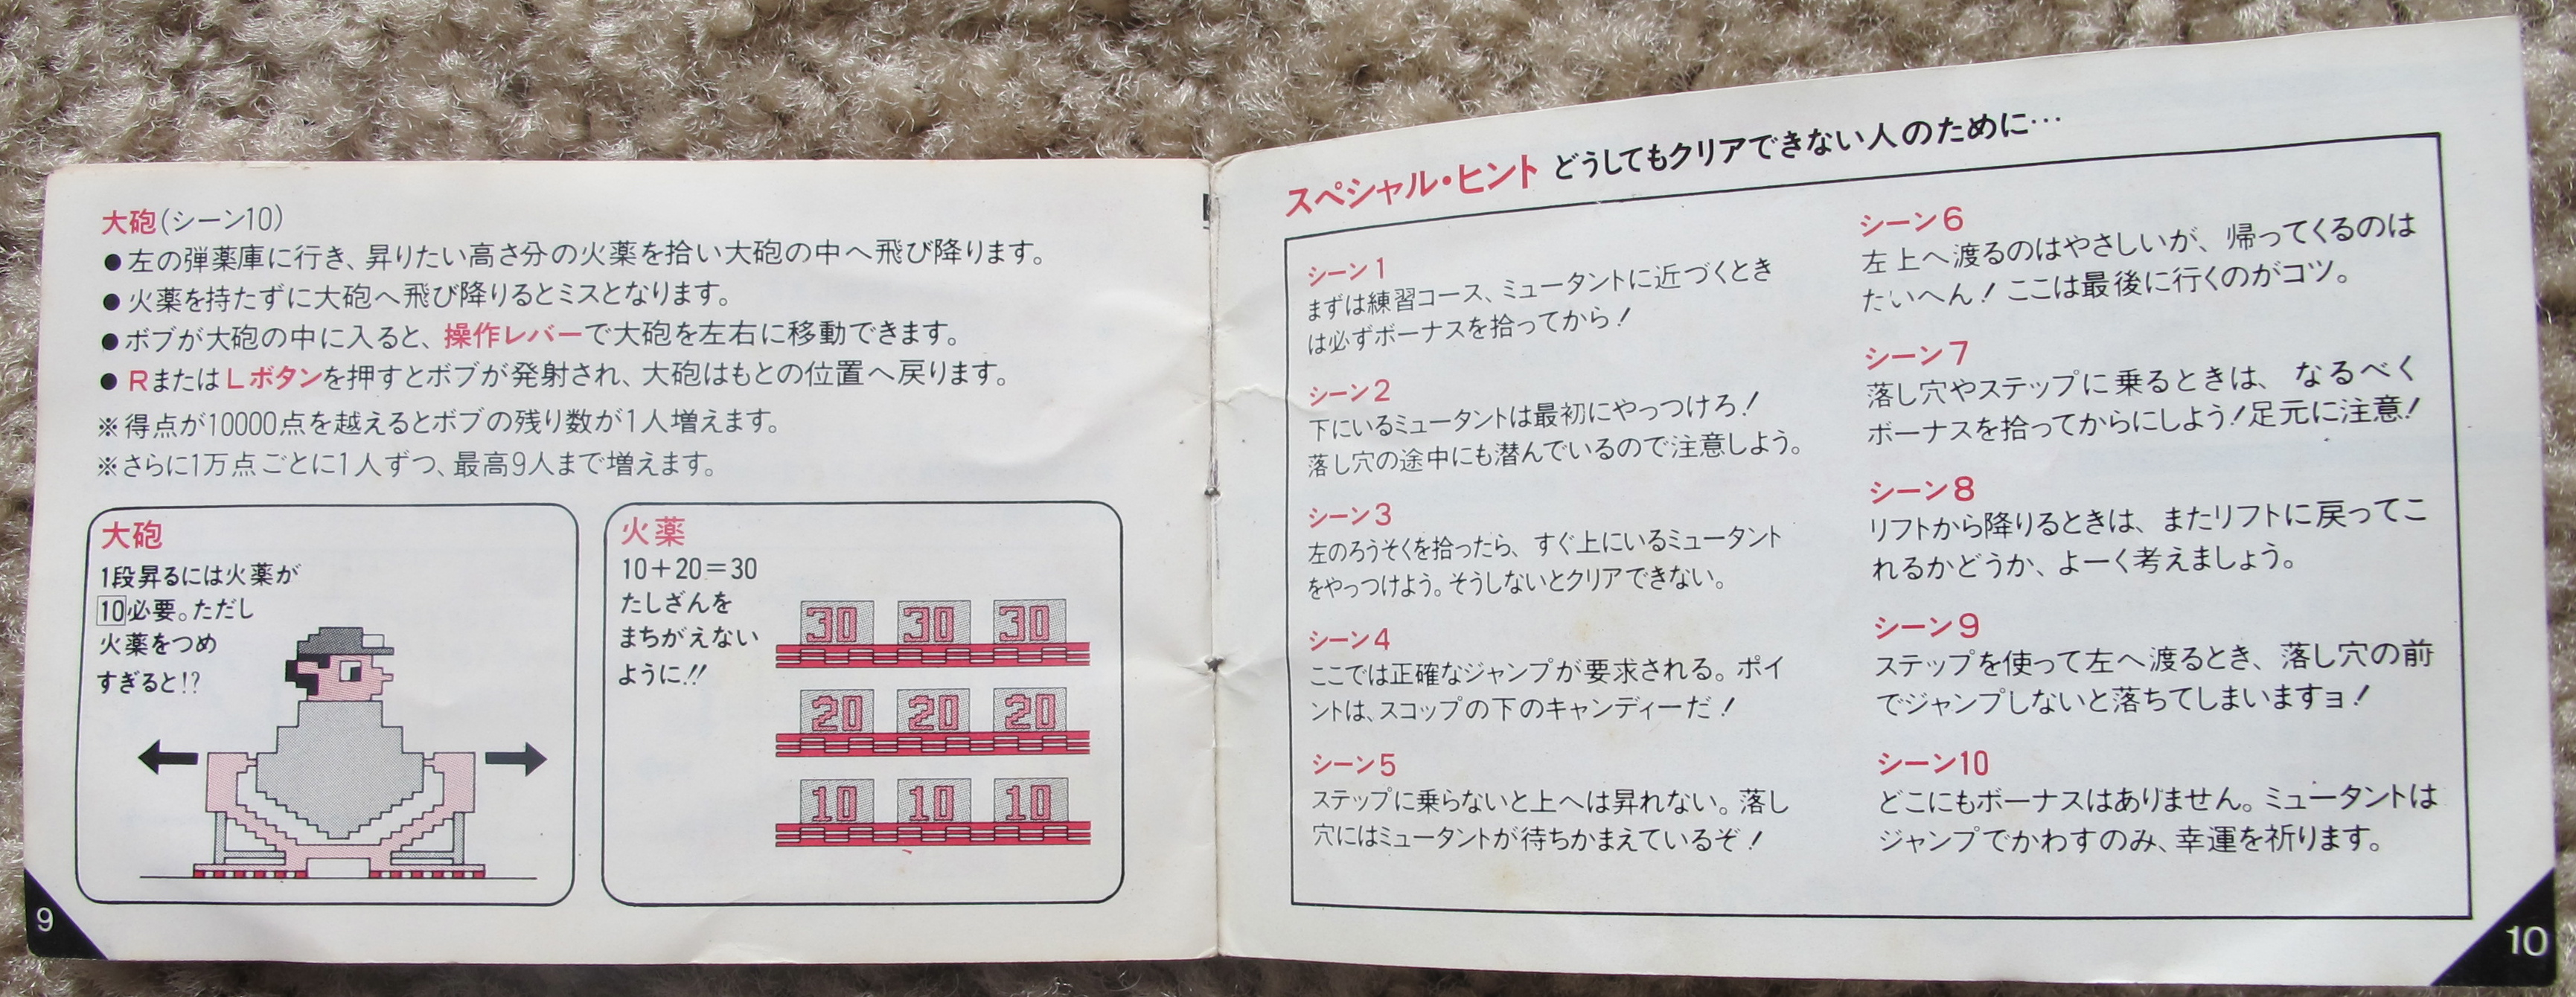 大砲(シーン10)
●左の弾薬庫に行き、昇りたい高さ分の火薬を拾い大砲の中へ飛び降ります。
●火薬を持たずに大砲へ飛び降りるとミスとなります。
●ボブが大砲の中に入ると、操作レバーで大砲を左右に移動できます。
●RまたはLボタンを押すとボブが発射され、大砲はもとの位置へ戻ります。
※得点が10000点を越えるとボブの残り数が1人増えます。
※さらに1万点ごとに1人ずつ、最高9人まで増えます。
大砲
1段昇るには火薬が
10必要。ただし
火薬をつめ
すぎると!?
火薬
10+20=30
たしざんを
まちがえない
ように!!
30 30 30
20 20 20
10 10 10
9
スペシャル・ヒント どうしてもクリアできない人のために…
シーン1
まずは練習コース、ミュータントに近づくとき
は必ずボーナスを拾ってから!
シーン2
下にいるミュータントは最初にやっつけろ!
落し穴の途中にも潜んでいるので注意しよう。
シーン3
左のろうそくを拾ったら、すぐ上にいるミュータント
をやっつけよう。そうしないとクリアできない。
シーン4
ここでは正確なジャンプが要求される。ポイ
ントは、スコップの下のキャンディーだ!
シーン5
ステップに乗らないと上へは昇れない。落し
穴にはミュータントが待ちかまえているぞ!
シーン6
左上へ渡るのはやさしいが、帰ってくるのは
たいへん!ここは最後に行くのがコツ。
シーン7
落し穴やステップに乗るときは、なるべく
ボーナスを拾ってからにしよう!足元に注意!
シーン8
リフトから降りるときは、またリフトに戻ってこ
れるかどうか、よーく考えましょう。
シーン9
ステップを使って左へ渡るとき、落し穴の前
でジャンプしないと落ちてしまいますョ!
シーン10
どこにもボーナスはありません。ミュータントは
ジャンプでかわすのみ、幸運を祈ります。
10